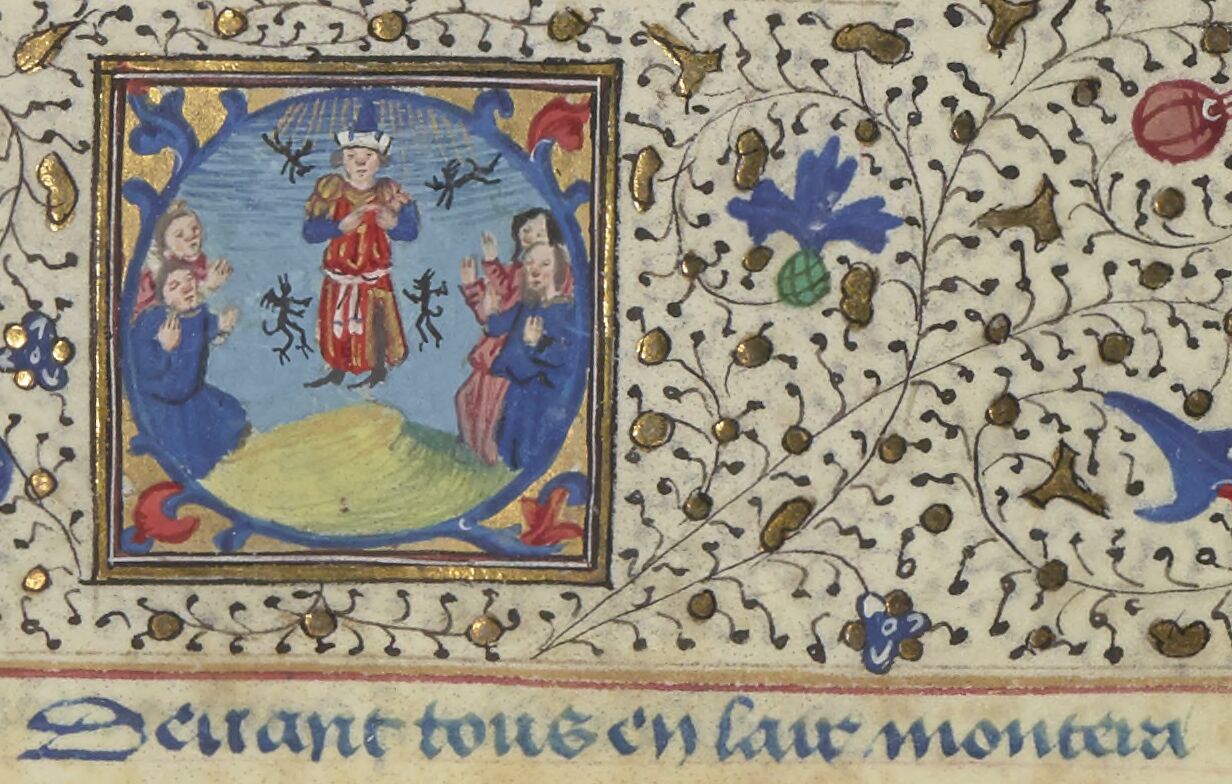 Deuant tous en lair montera